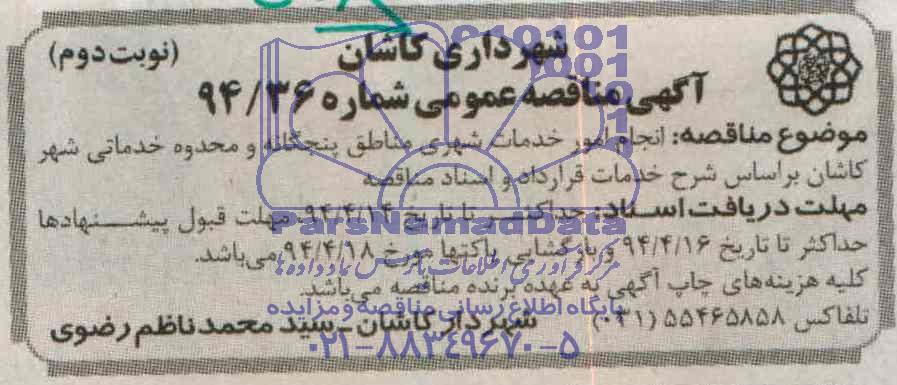 شهرداری کاشان
(نوبت دوم)
آگهی مناقصه عمومی شماره ۹۴/۳۶
موضوع مناقصه: انجام امور خدمات شهری مناطق پنجگانه و محدوه خدماتی شهر
کاشان براساس شرح خدمات قرارداد و اسناد مناقصه
مهلت دریافت اسناد: حداکثر تا تاریخ ۹۴/۴/۱۴، مهلت قبول پیشنهادها
حداکثر تا تاریخ ۹۴/۴/۱۶ و بازگشایی پاکتها مورخ ۹۴/۴/۱۸ می‌باشد.
کلیه هزینه‌های چاپ آگهی به عهده برنده مناقصه می‌باشد.
تلفاکس ۵۵۴۶۵۸۵۸ (۰۳۱)
شهردار کاشان - سید محمدناظم رضوی
ParsNamadData
مرکز فرآوری اطلاعات پارس نماد داده ها
پایگاه اطلاع رسانی مناقصه و مزایده
۰۲۱-۸۸۳۴۹۶۷۰-۵